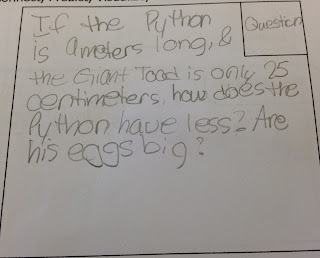 If the Python
Question
is 9 meters long, &
the Giant Toad is only 25
centimeters, how does the
Python have less? Are
his eggs big?